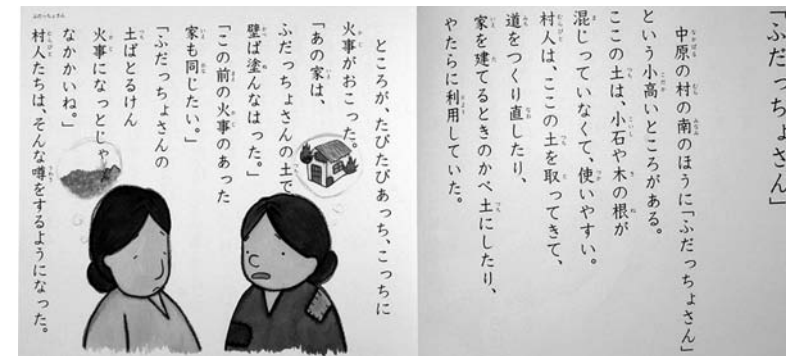 「ふだっちょさん」
中原の村の南のほうに「ふだっちょさん」
という小高いところがある。
ここの土は、小石や木の根が
混じっていなくて、使いやすい。
村人は、ここの土を取ってきて、
道をつくり直したり、
家を建てるときのかべ土にしたり、
やたらに利用していた。
ところが、たびたびあっち、こっちに
火事がおこった。
「あの家は、
ふだっちょさんの土で
壁ば塗んなはった。」
「この前の火事のあった
家も同じたい。」
「ふだっちょさんの
土ばとるけん
火事になっとじゃ
なかかいね。」
村人たちは、そんな噂をするようになった。